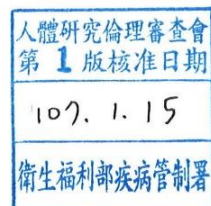 人體研究倫理審查會
第 1 版核准日期
107. 1. 15
衛生福利部疾病管制署